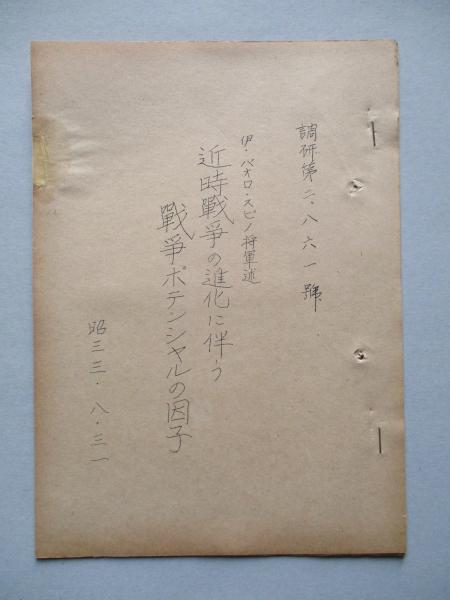 調研第二・八六一號
伊・パオロ・スピノ将軍述
近時戰爭の進化に伴う
戰爭ポテンシャルの因子
昭三三・八・三一